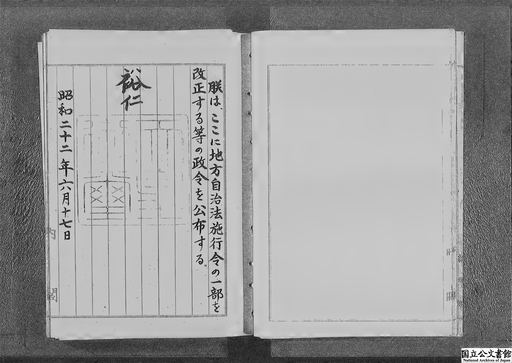 朕は、ここに地方自治法施行令の一部を
改正する等の政令を公布する、
裕仁
昭和二十二年六月十七日
内閣
国立公文書館
National Archives of Japan